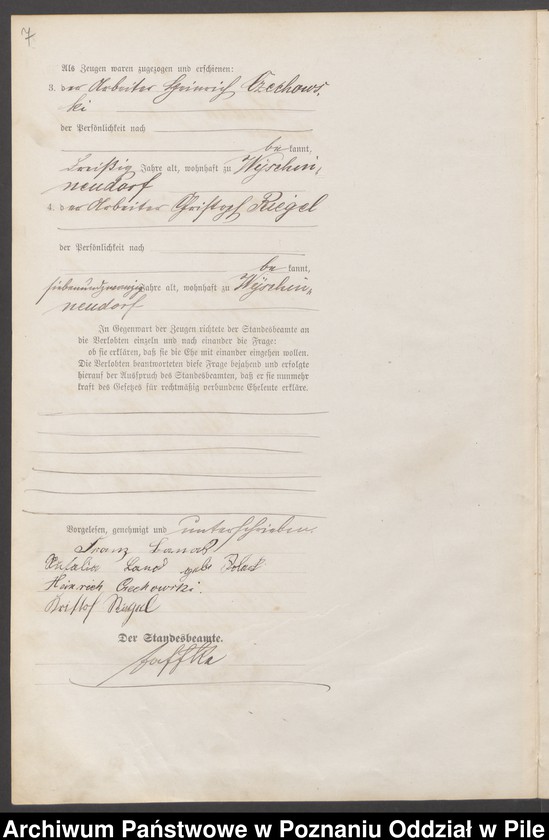 7
Als Zeugen waren zugezogen und erschienen:
3. der Arbeiter Heinrich Czechows-
ki
der Persönlichkeit nach
be kannt,
dreißig Jahre alt, wohnhaft zu Wyschin-
neudorf
4. der Arbeiter Christoph Riegel
der Persönlichkeit nach
be kannt,
siebenundzwanzig Jahre alt, wohnhaft zu Wyschin-
neudorf
In Gegenwart der Zeugen richtete der Standesbeamte an
die Verlobten einzeln und nach einander die Frage:
ob sie erklären, daß sie die Ehe mit einander eingehen wollen.
Die Verlobten beantworteten diese Frage bejahend und erfolgte
hierauf der Ausspruch des Standesbeamten, daß er sie nunmehr
kraft des Gesetzes für rechtmäßig verbundene Eheleute erkläre.
Vorgelesen, genehmigt und unterschrieben.
Franz
Natalie geb.
Heinrich Czechowski.
Kristof
Der Standesbeamte.
Archiwum Państwowe w Poznaniu Oddział w Pile